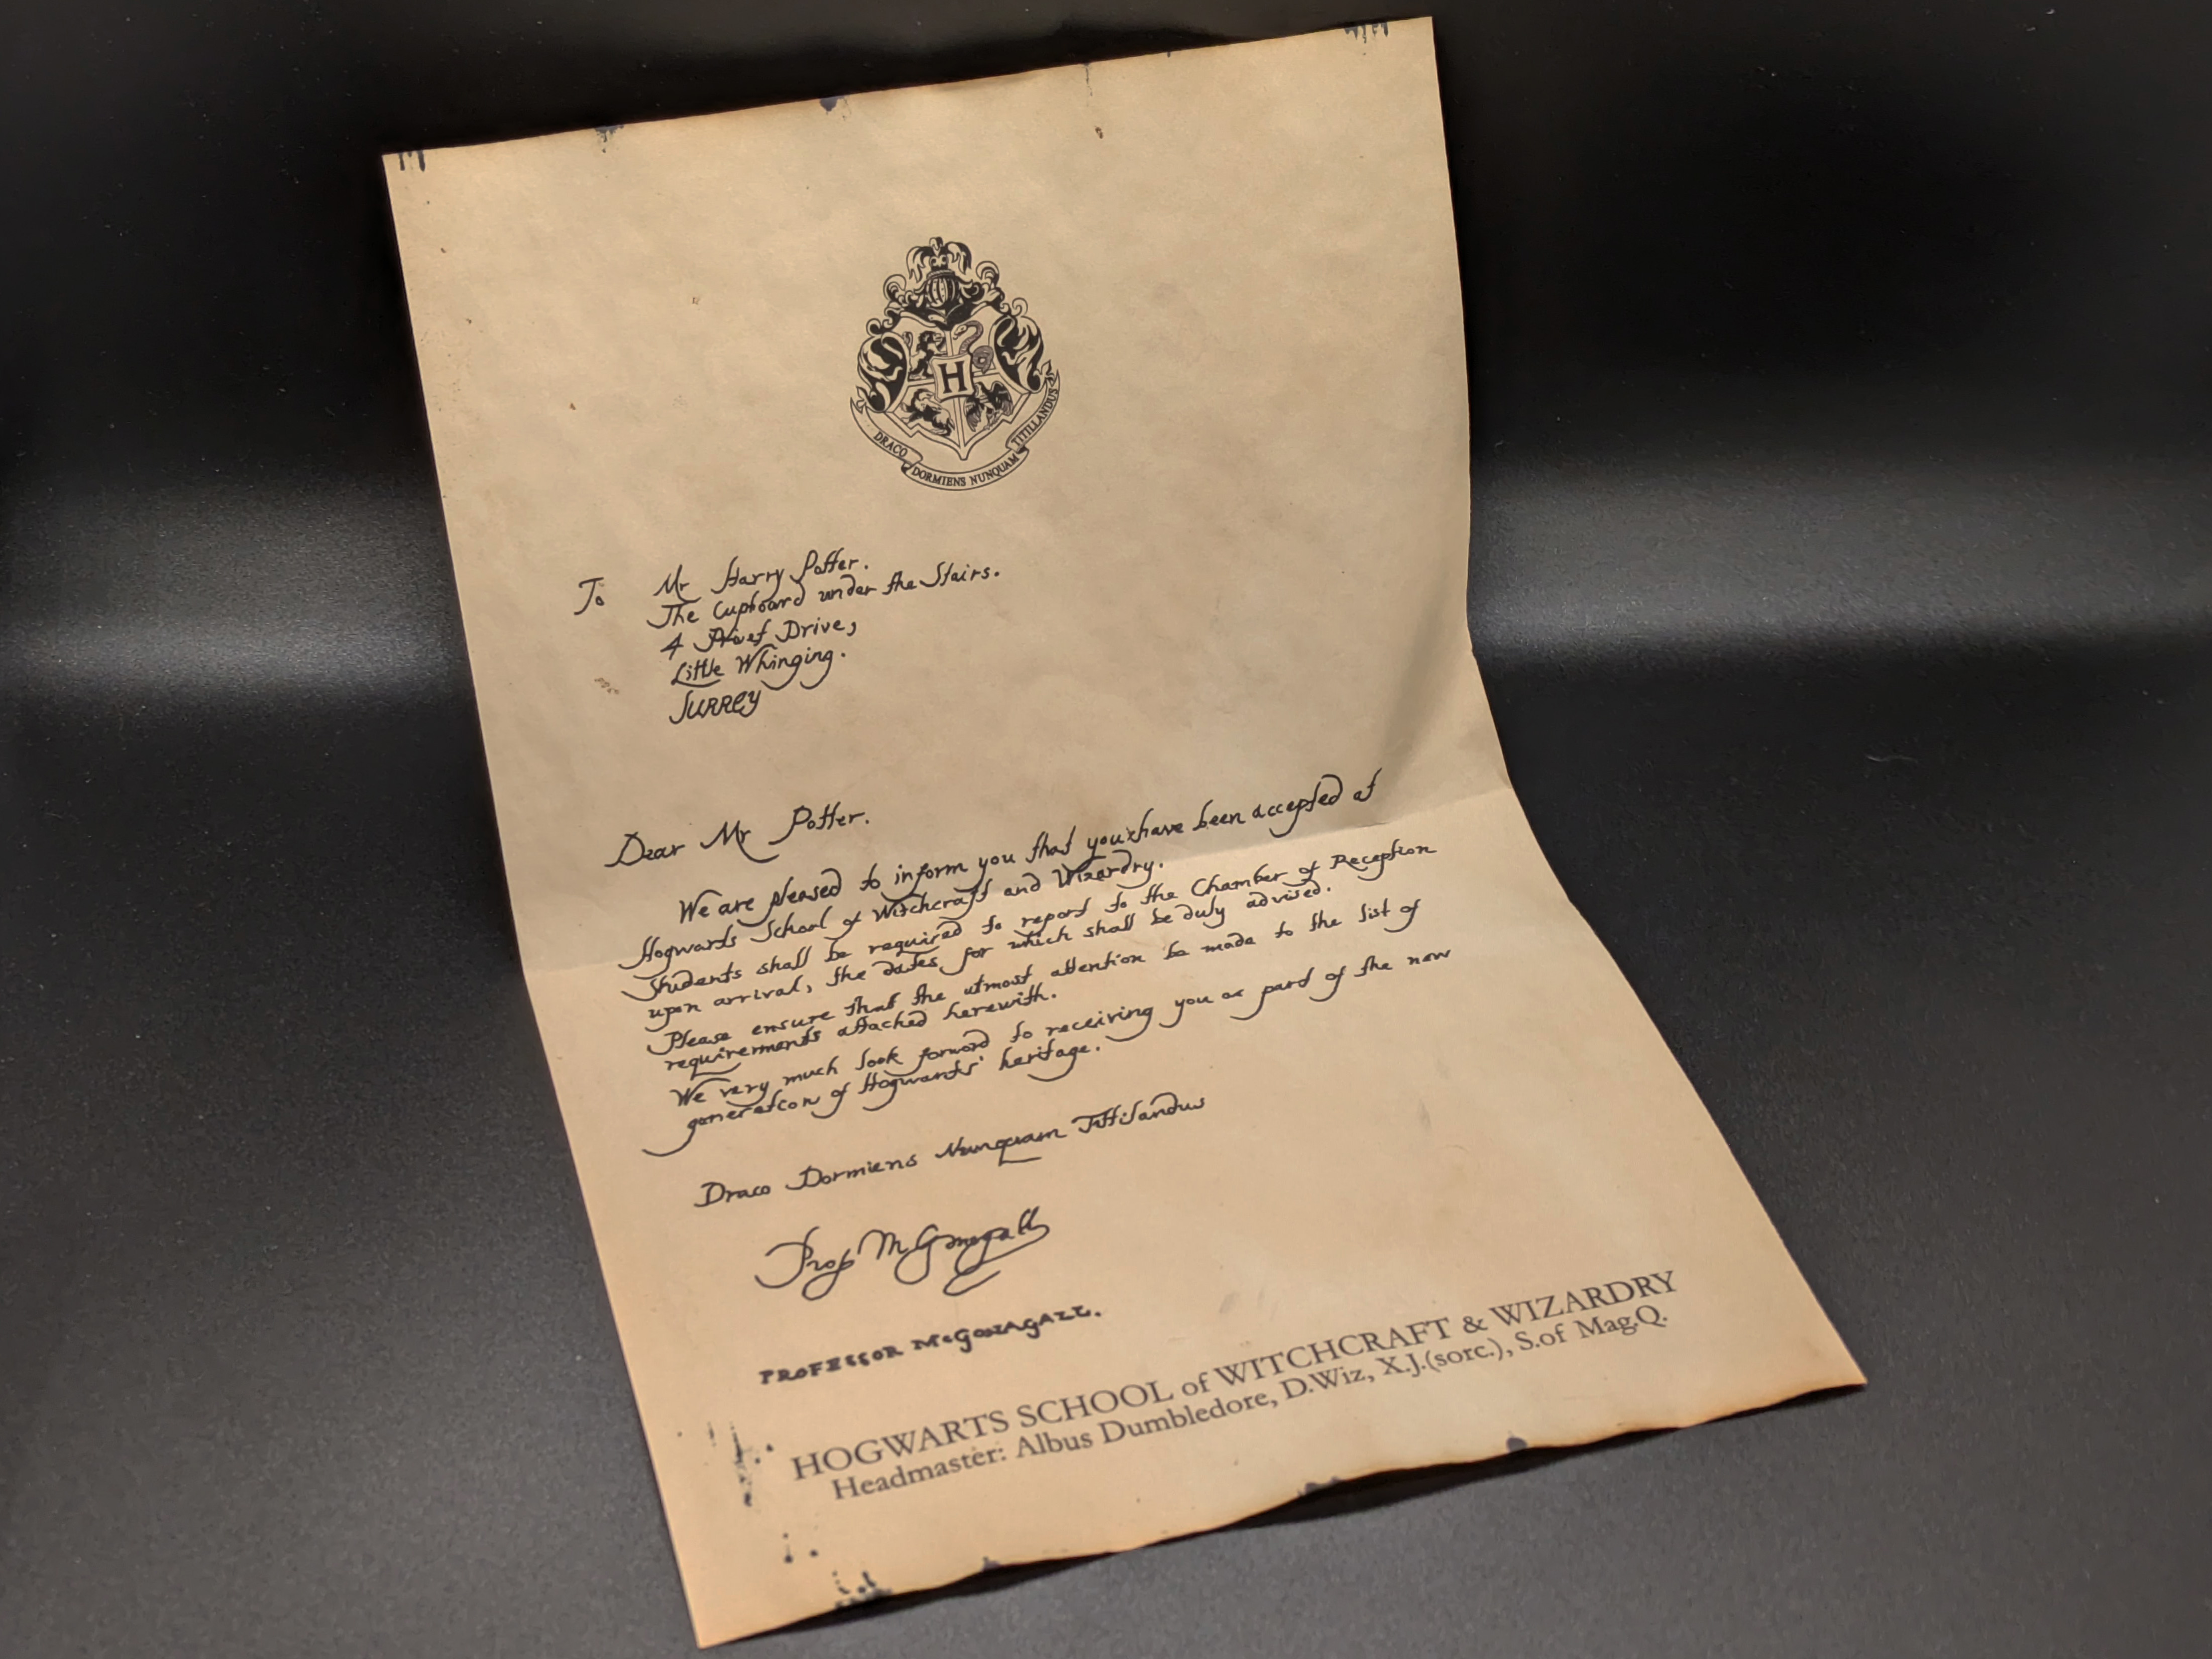 H
DRACO DORMIENS NUNQUAM TITILLANDUS
To Mr Harry Potter.
The Cupboard under the Stairs.
4 Privet Drive,
Little Whinging.
SURREY
Dear Mr Potter.
We are pleased to inform you that you have been accepted at
Hogwarts School of Witchcraft and Wizardry.
Students shall be required to report to the Chamber of Reception
upon arrival, the dates for which shall be duly advised.
Please ensure that the utmost attention be made to the list of
requirements attached herewith.
We very much look forward to receiving you as part of the new
generation of Hogwarts' heritage.
Draco Dormiens Nunquam Tittilandus
Prof McGonagall
PROFESSOR McGONAGALL.
HOGWARTS SCHOOL of WITCHCRAFT & WIZARDRY
Headmaster: Albus Dumbledore, D.Wiz, X.J.(sorc.), S.of Mag.Q.